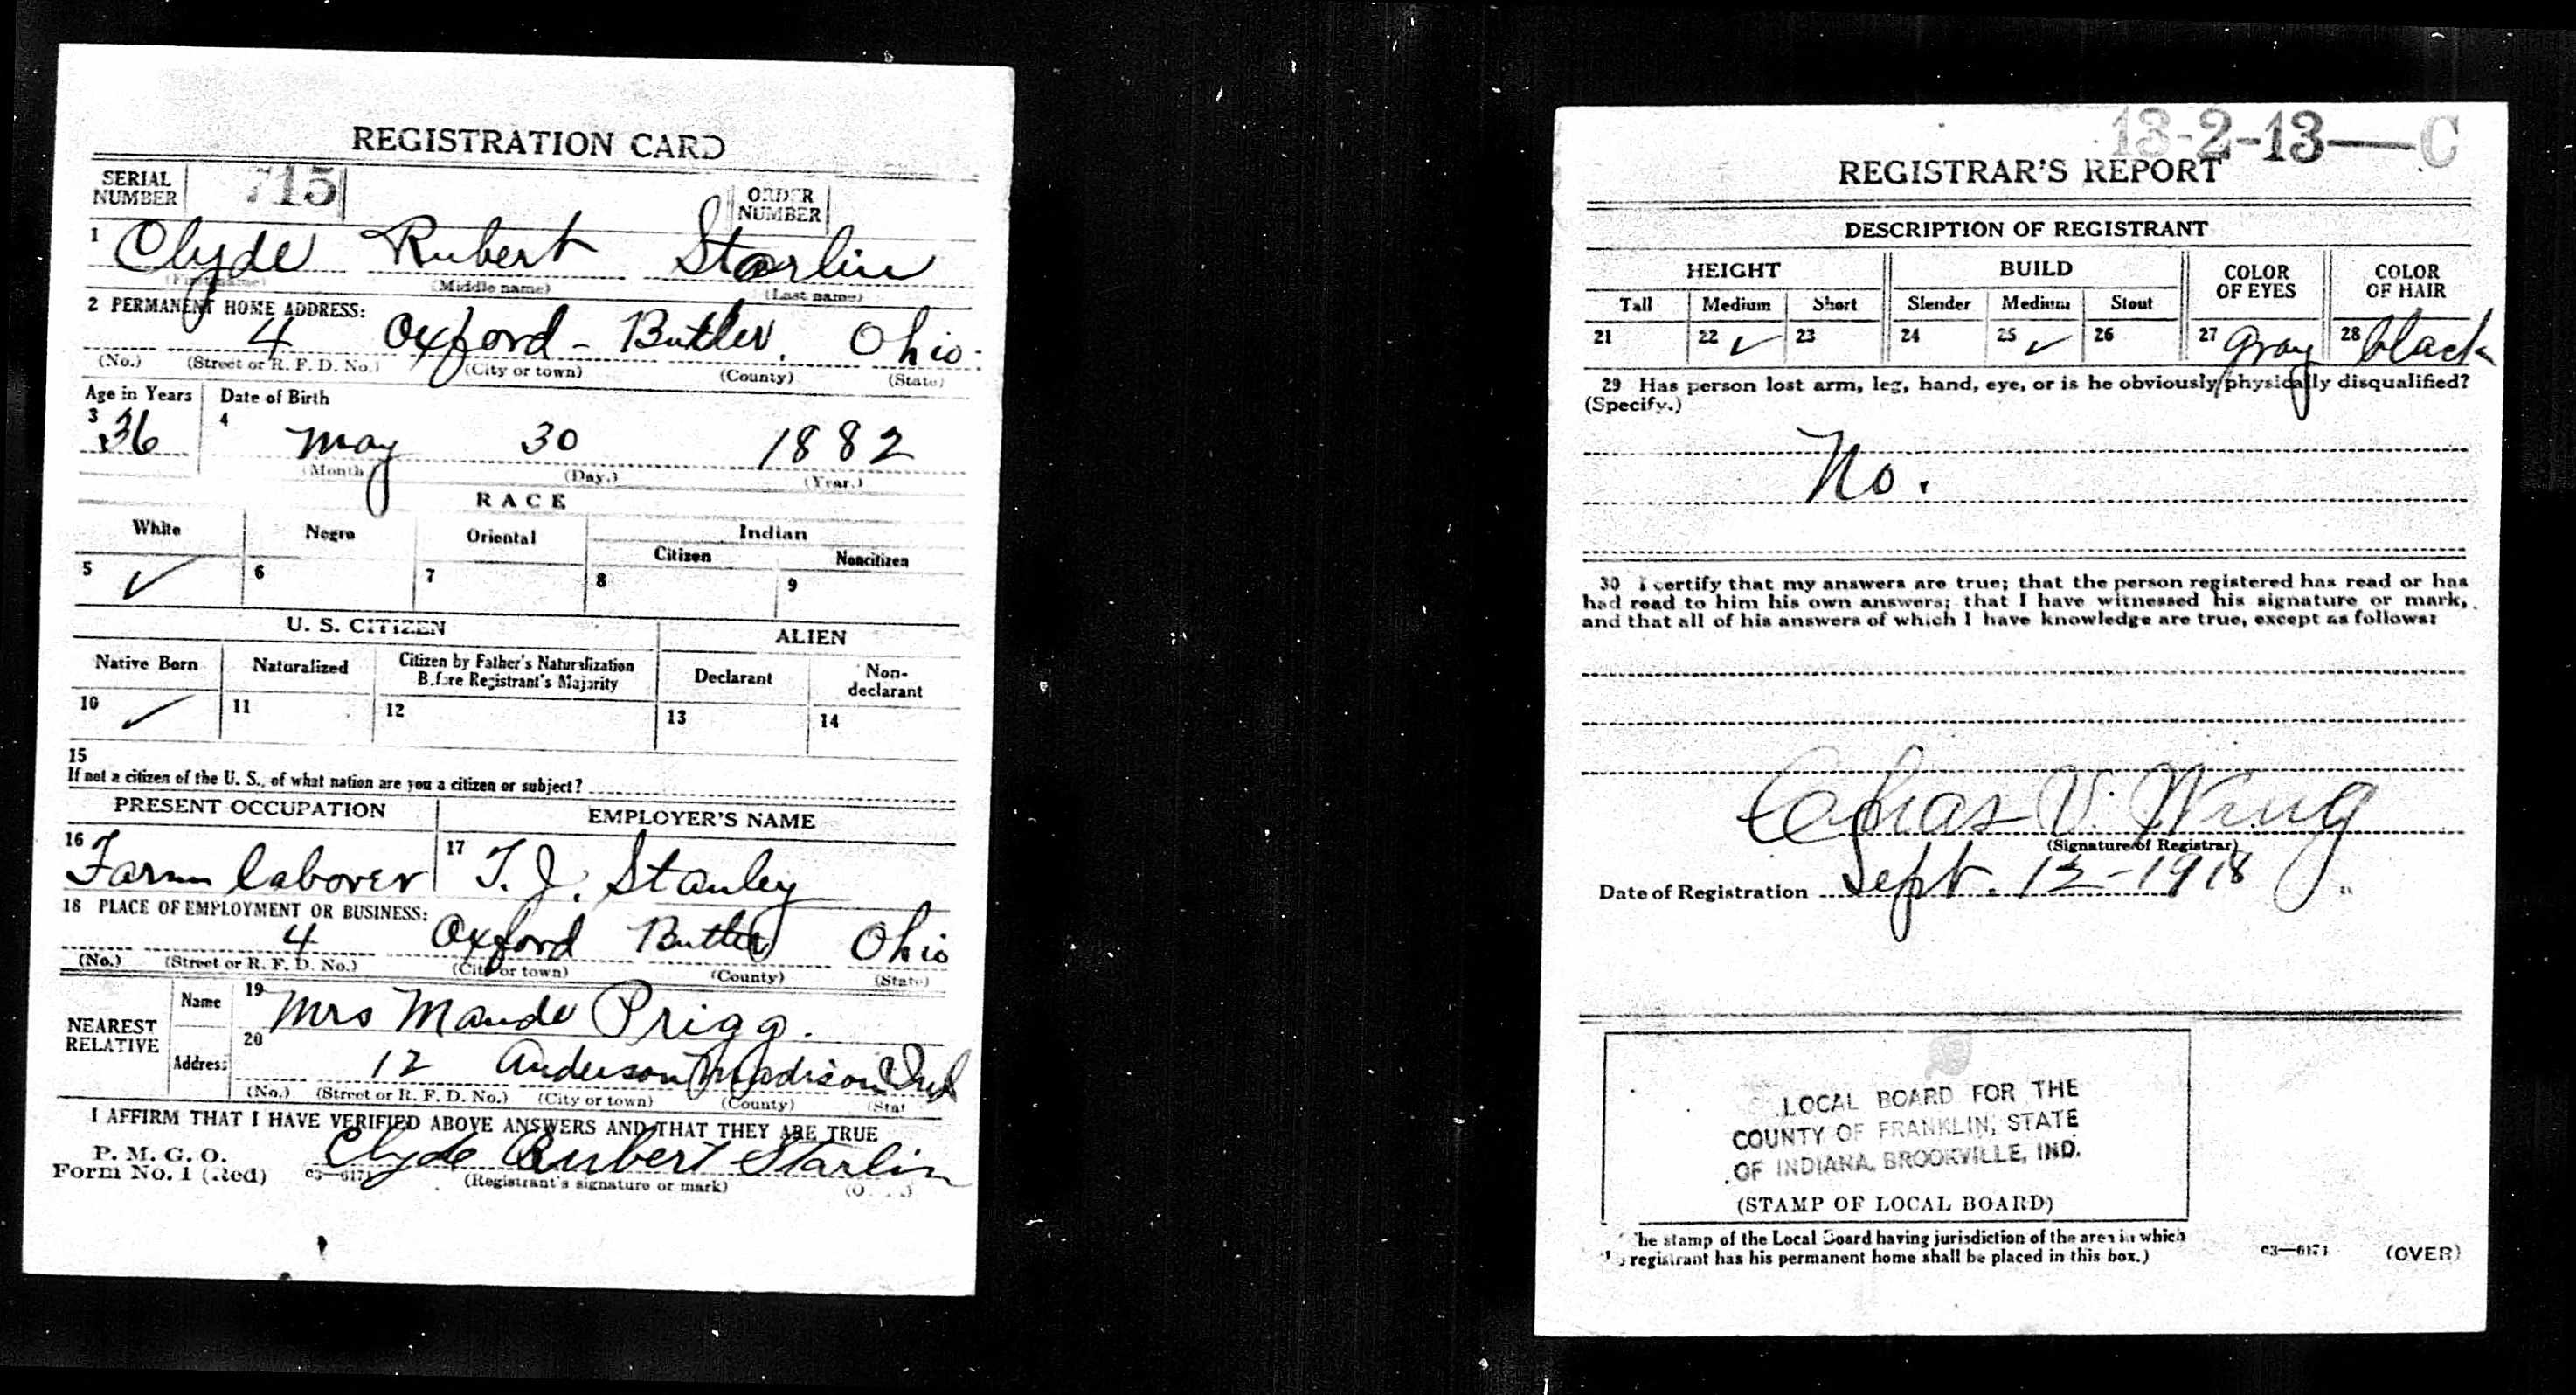 REGISTRATION CARD
SERIAL NUMBER 715 ORDER NUMBER
1 Clyde Rubert Starlin
(First name) (Middle name) (Last name)
2 PERMANENT HOME ADDRESS:
4 Oxford - Butler, Ohio.
(No.) (Street or R. F. D. No.) (City or town) (County) (State)
Age in Years Date of Birth
3 36 4 May 30 1882
(Month) (Day.) (Year.)
RACE
White Negro Oriental Indian
Citizen Noncitizen
5 ✓ 6 7 8 9
U. S. CITIZEN ALIEN
Native Born Naturalized Citizen by Father's Naturalization Before Registrant's Majority Declarant Non-declarant
10 ✓ 11 12 13 14
15
If not a citizen of the U. S., of what nation are you a citizen or subject?
PRESENT OCCUPATION EMPLOYER'S NAME
16 Farm laborer 17 T. J. Stanley
18 PLACE OF EMPLOYMENT OR BUSINESS:
4 Oxford Butler Ohio
(No.) (Street or R. F. D. No.) (City or town) (County) (State)
NEAREST RELATIVE
Name 19 Mrs Maude Prigg.
Address 20 12 Anderson Madison Ind
(No.) (Street or R. F. D. No.) (City or town) (County) (Stat
I AFFIRM THAT I HAVE VERIFIED ABOVE ANSWERS AND THAT THEY ARE TRUE
P. M. G. O.
Form No. 1 (Red) c3—6171 Clyde Rubert Starlin
(Registrant's signature or mark)
13-2-13—C
REGISTRAR'S REPORT
DESCRIPTION OF REGISTRANT
HEIGHT BUILD COLOR OF EYES COLOR OF HAIR
Tall Medium Short Slender Medium Stout
21 22 ✓ 23 24 25 ✓ 26 27 gray 28 black
29 Has person lost arm, leg, hand, eye, or is he obviously physically disqualified?
(Specify.)
No.
30 I certify that my answers are true; that the person registered has read or has
had read to him his own answers; that I have witnessed his signature or mark,
and that all of his answers of which I have knowledge are true, except as follows:
Chas V. Wing
(Signature of Registrar)
Date of Registration Sept. 12-1918
LOCAL BOARD FOR THE
COUNTY OF FRANKLIN, STATE
OF INDIANA, BROOKVILLE, IND.
(STAMP OF LOCAL BOARD)
he stamp of the Local Board having jurisdiction of the area in which
registrant has his permanent home shall be placed in this box.)
c3—6171 (OVER)